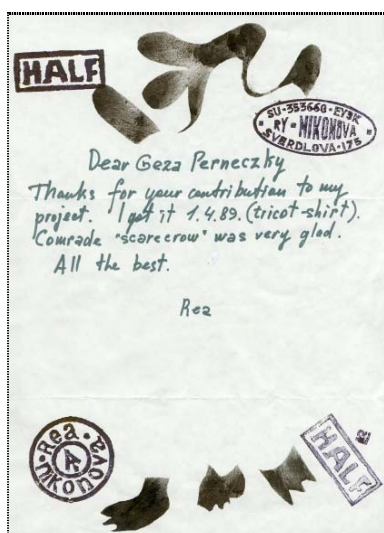 HALF
SU-353660-EYSK
RY-NIKONOVA
SVERDLOVA-175
Dear Geza Perneczky
Thanks for your contribution to my
project. I got it 1.4.89. (tricot-shirt).
Comrade "scarecrow" was very glad.
All the best.
Rea
Rea • Nikonova
A
HALF